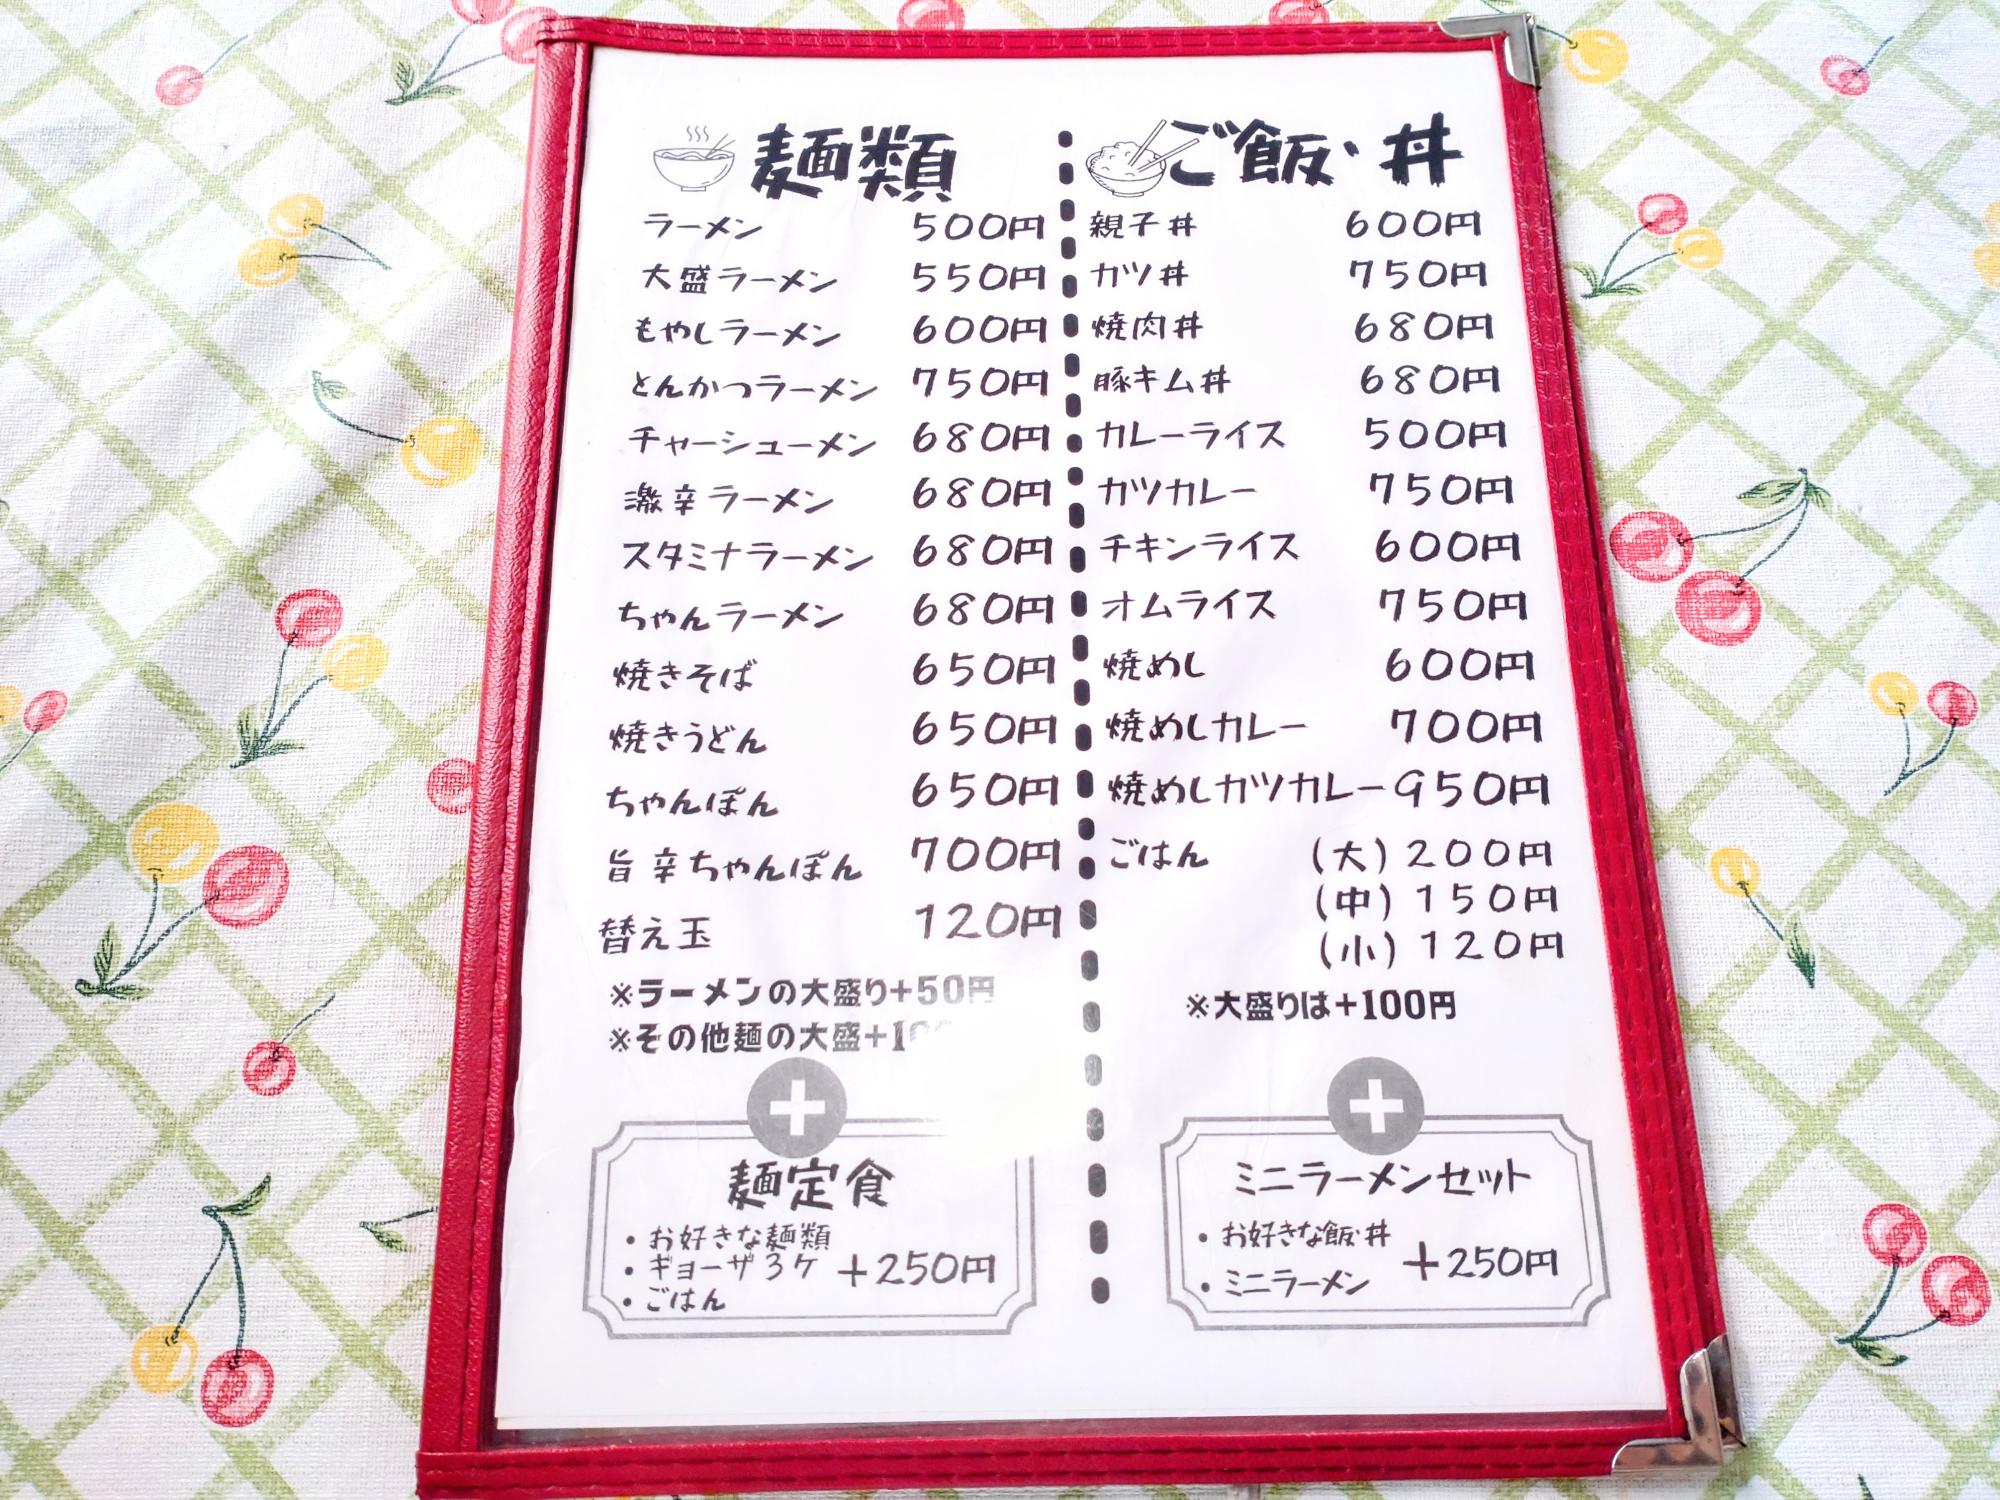 麺類
ラーメン 500円
大盛ラーメン 550円
もやしラーメン 600円
とんかつラーメン 750円
チャーシューメン 680円
激辛ラーメン 680円
スタミナラーメン 680円
ちゃんラーメン 680円
焼きそば 650円
焼きうどん 650円
ちゃんぽん 650円
旨辛ちゃんぽん 700円
替え玉 120円
※ラーメンの大盛り+50円
※その他麺の大盛+
麺定食
・お好きな麺類
・ギョーザ3ケ +250円
・ごはん
ご飯・丼
親子丼 600円
カツ丼 750円
焼肉丼 680円
豚キム丼 680円
カレーライス 500円
カツカレー 750円
チキンライス 600円
オムライス 750円
焼めし 600円
焼めしカレー 700円
焼めしカツカレー 950円
ごはん (大) 200円
(中) 150円
(小) 120円
※大盛りは+100円
ミニラーメンセット
・お好きな飯・丼
+250円
・ミニラーメン